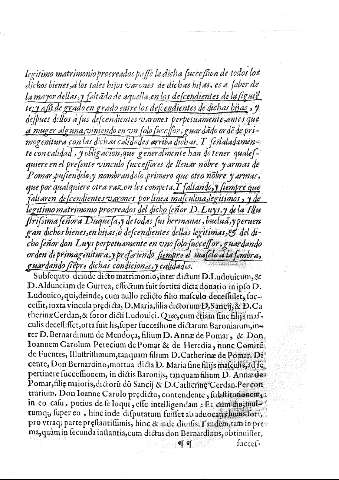 legitimo matrimonio procreados passe la dicha succession de todos los
dichos bienes, a los tales hijos varones de dichas hijas, es a saber de
la mayor dellas, y faltãdo de aquella, en los descendientes de la siguiẽ
te: y assi de grado en grado entre los descendientes de dichas hijas, y
despues dellos a sus descendientes varones perpetuamente, antes que
a muger alguna, viniendo en vn solo successor, guardãdo ordẽ de pri-
mogenitura con las dichas calidades arriba dichas. Y señaladamen-
te con calidad, y obligacion, que generalmente han de tener quales-
quiere en el presente vinculo successores de lleuar nõbre y armas de
Pomar poniendolo, y nombrandolo primero que otro nõbre y armas,
que por qualquiere otra razon les competa. Y faltando, y siempre que
faltaren descendientes varones por linea masculina, legitimos, y de
legitimo matrimonio procreados del dicho señor D. Luys, y de la Illu-
strissima señora Duquesa, y de todas sus hermanas, bueluã, y peruen
gan dichos bienes, en hijas, ò descendientes dellas legitimas, del di-
cho señor don Luys perpetuamente en vno solo successor, guardando
orden de primogenitura, y prefiriendo siempre el masculo a la hembra,
guardando siẽpre dichas condiciones, y calidades.
Subsequto deinde dicto matrimonio, inter dictum D. Ludouicum, &
D. Aldunciam de Gurrea, effectum fuit sortita dicta donatio in ipso D.
Ludouico, qui, deinde, cum nullo relicto filio masculo decessisset, suc-
cessit, iuxta vincula prędicta, D. Maria, filia dictorum D. Sancij, & D. Ca
therinæ Cerdan, & soror dicti Ludouici. Quæ, cum etiam sine filijs mas-
culis decessisset, orta fuit lis, super successione dictarum Baroniarum, in-
ter D. Bernardinum de Mendoça, filium D. Annæ de Pomar, & Don
Ioannem Carolum Petrecium de Pomar & de Heredia, nunc Comitẽ
de Fuentes, Illustrissimum, tanquam filium D. Catherinæ de Pomar. Di
cente, Don Bernardino, mortua dicta D. Maria sine filijs masculis, ad se,
pertinere successionem, in dictis Baronijs, tanquam filium D. Annæ de
Pomar, filiæ maioris, dictorũ dõ Sancij & D. Catherinæ Cerdan. Per con
trarium. Don Ioanne Carolo prędicto, contendente, substitutionem,
in eo casu, potius de se loqui, esse intelligendam: Et cum
tumq; super eo, hinc inde disputatum fuisset ab aduocatis
pro vtraq; parte pręstantissimis, hinc & inde
ma, quàm in secunda instantia, cum dictus don Bernardinus, obtinuisset,
¶¶ succes-